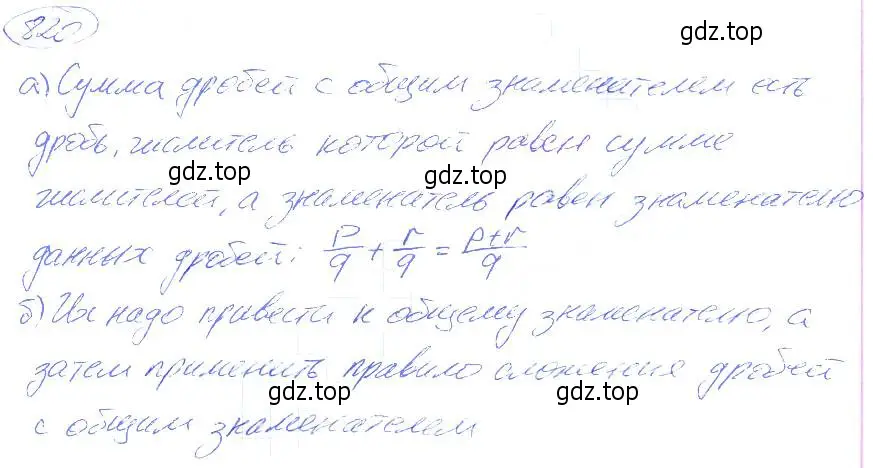 820
gdz.top
а) Сумма дробей с общим знаменателем есть
дробь, числитель которой равен сумме
gdz.top gdz.top
числителей, а знаменатель равен знаменателю
данных дробей: p/q + r/q = p+r/q
б) Их надо привести к общему знаменателю, а
затем применить правило сложения дробей
gdz.top gdz.top
с общим знаменателем